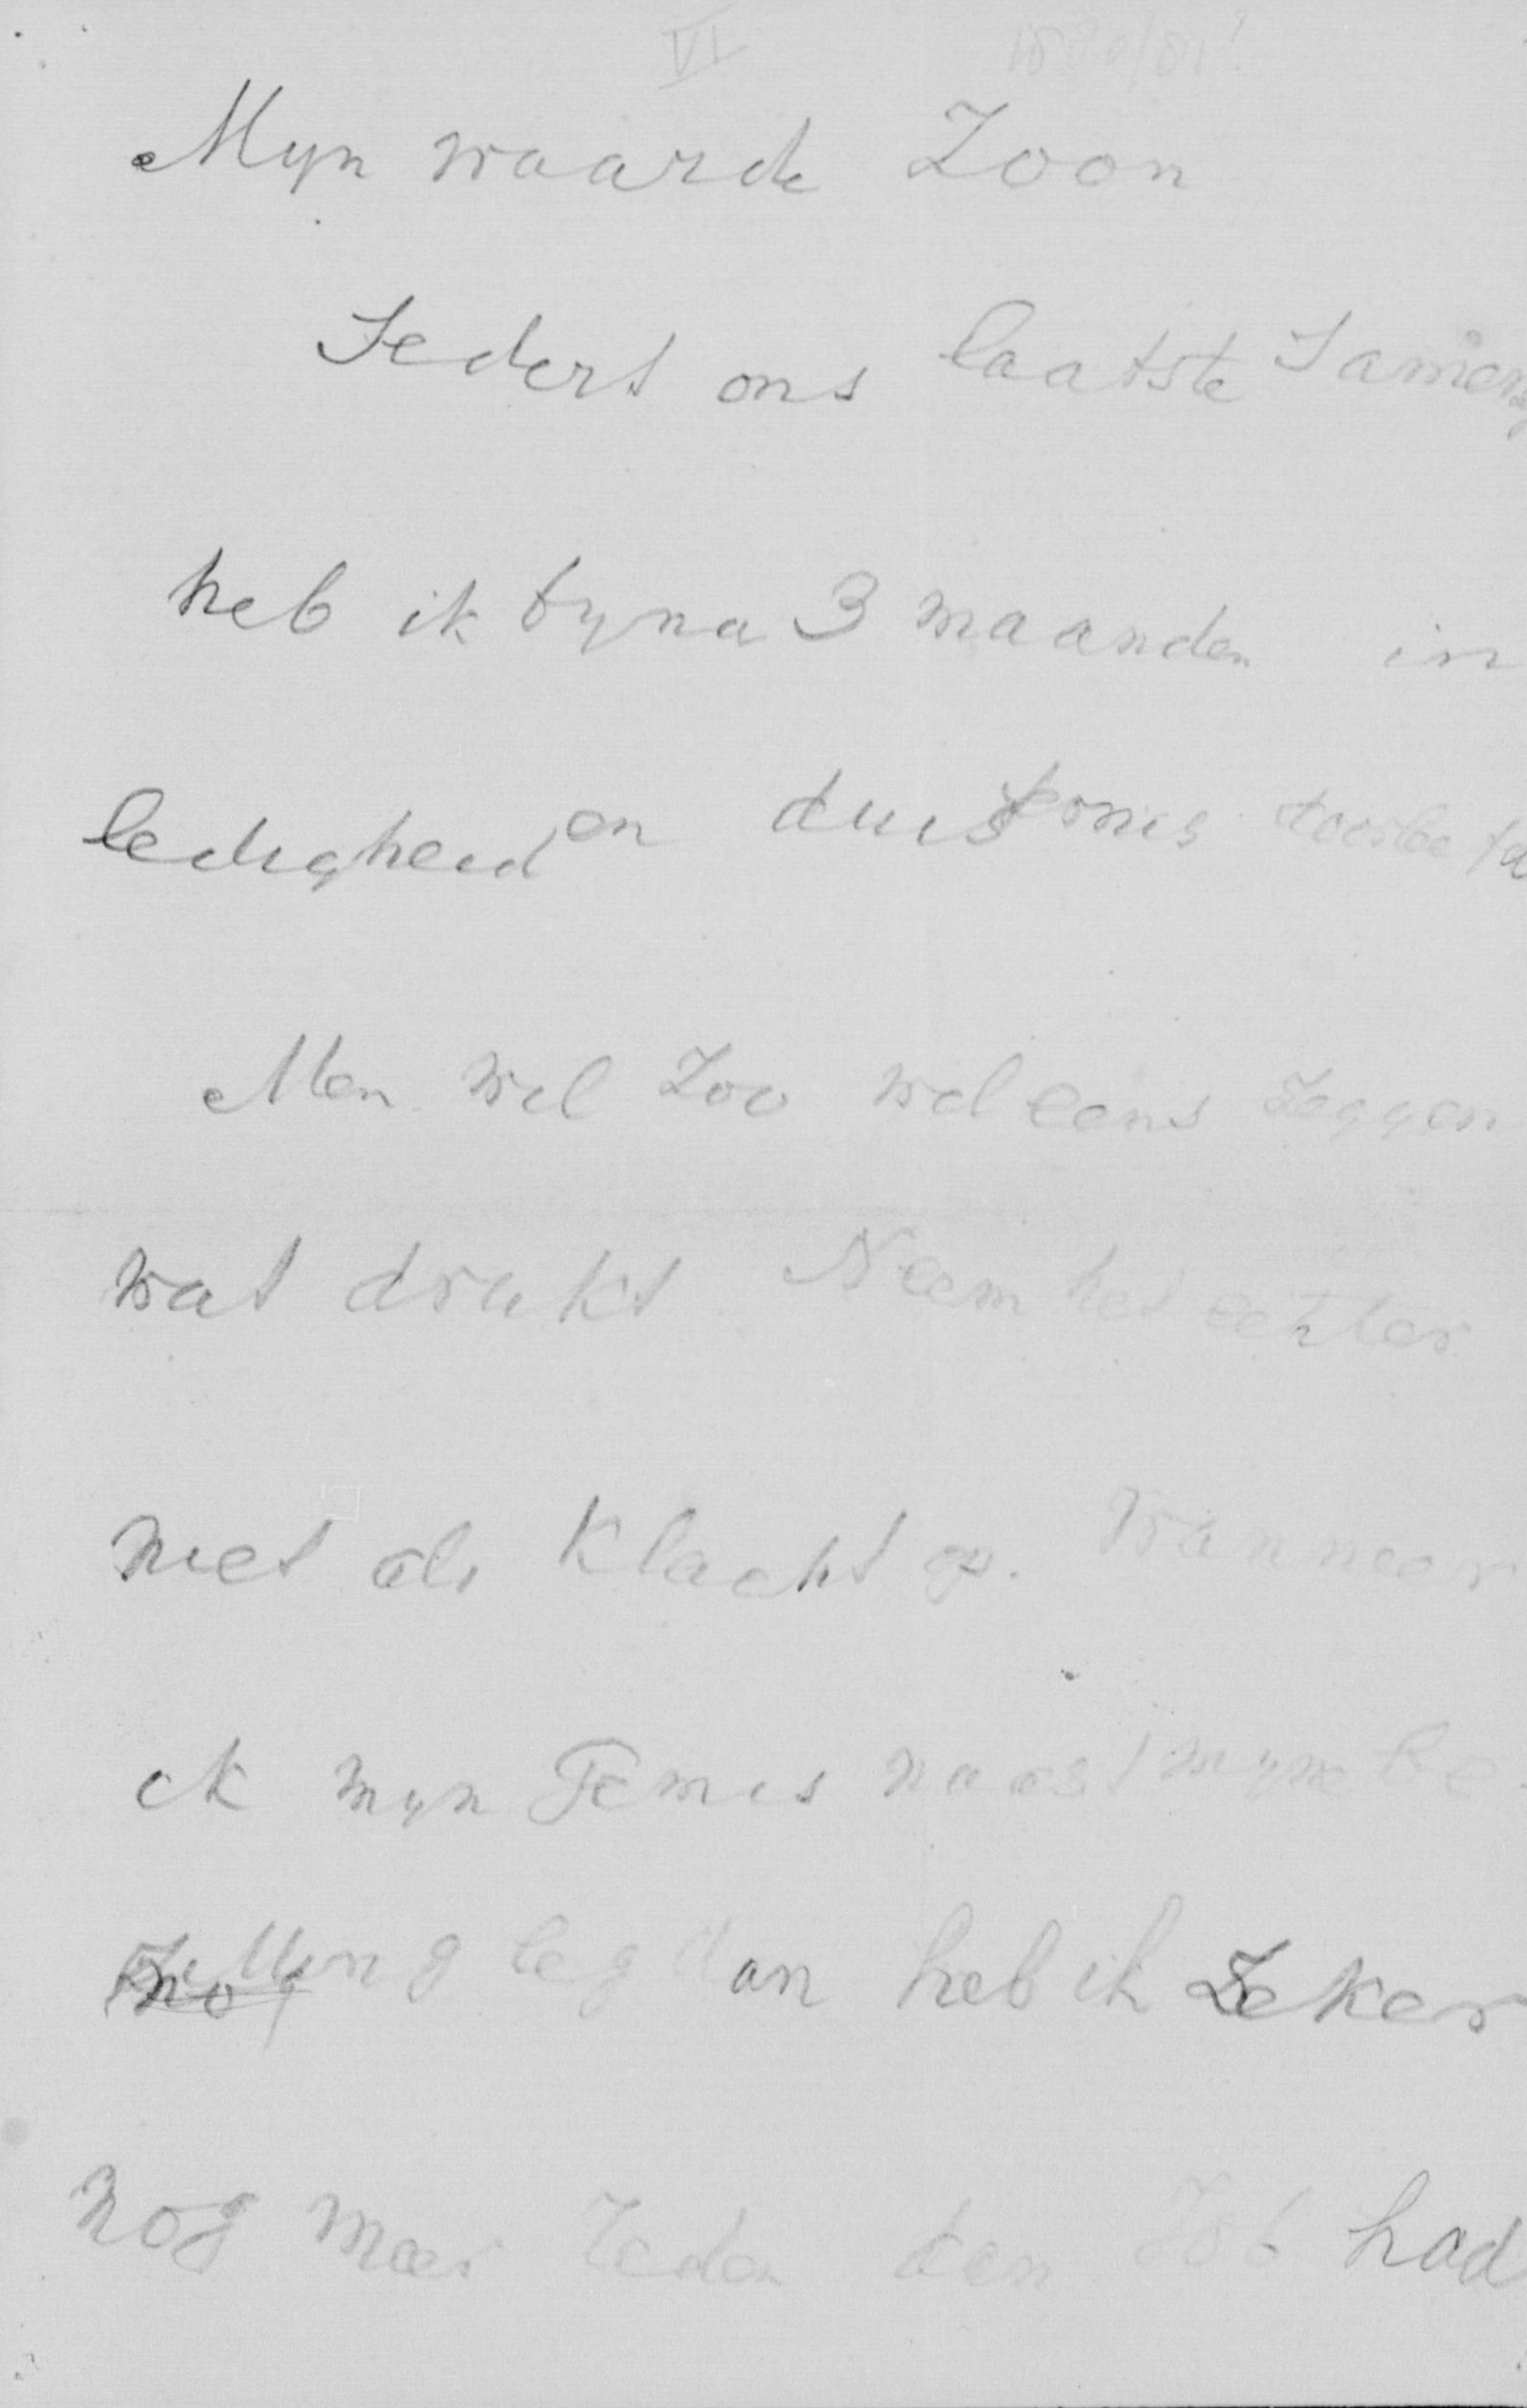 VI 1880/81?
Myn waarde Zoon
Sedert ons laatste Samen
heb ik byna 3 maanden in
ledigheid en duisternis
Men wil Zoo wel eens Zeggen
wat drukt Neem het echter
niet als Klacht op. Wanneer
ik myn Gemis naast myne Be
leg dan heb ik Zeker
nog meer reden dan Job had